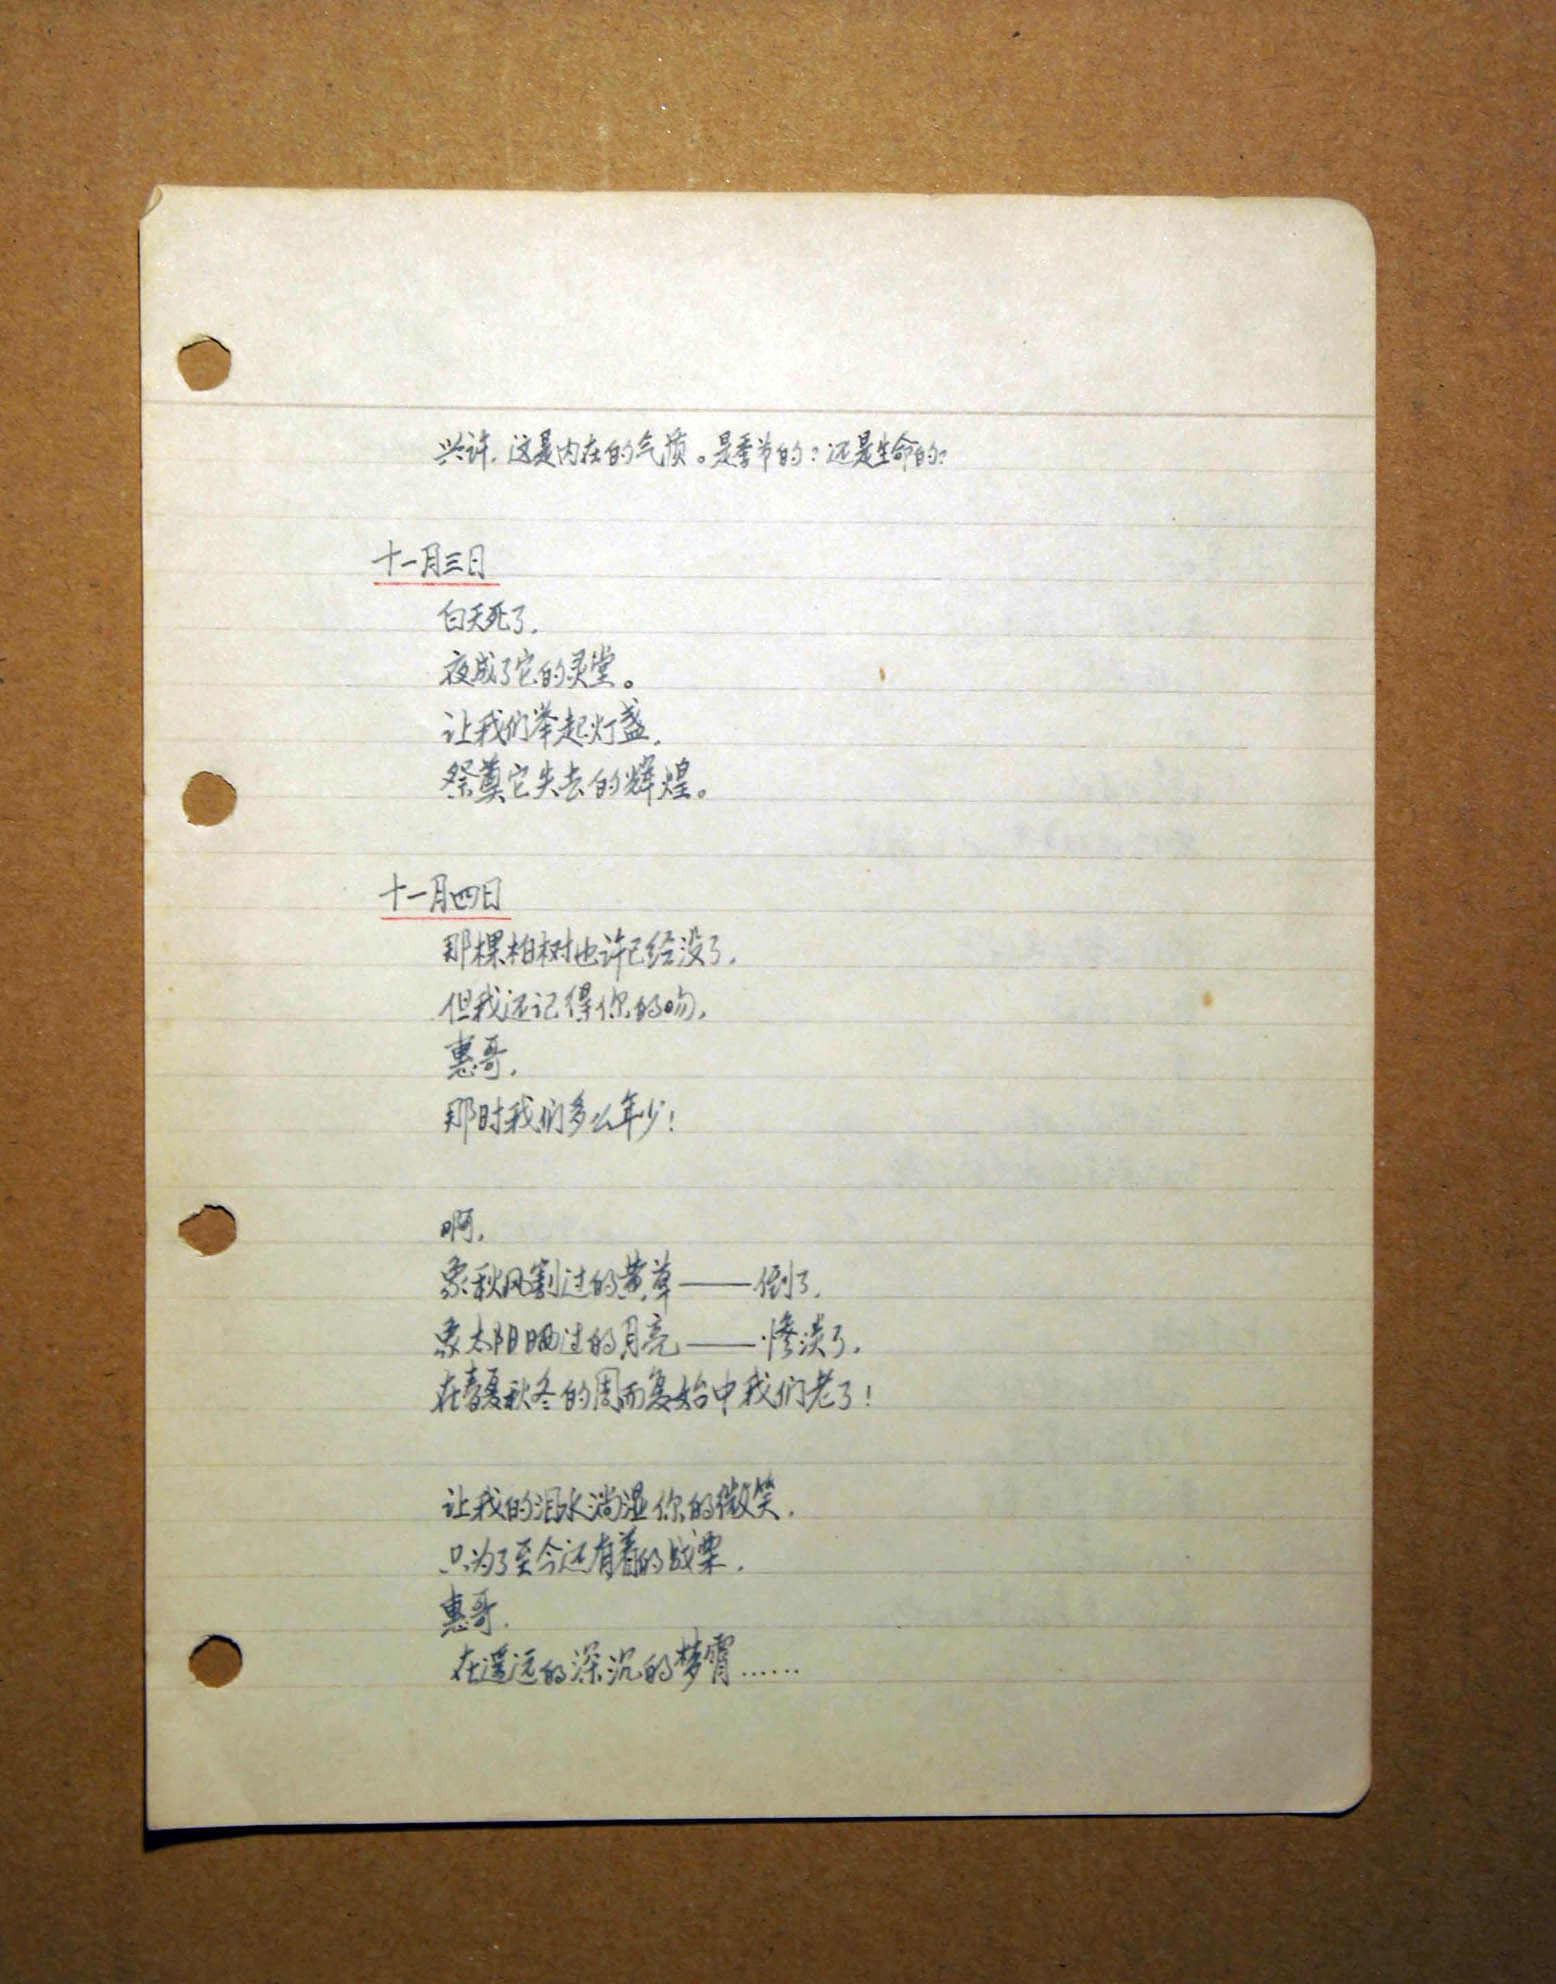 兴许，这是内在的气质。是季节的？还是生命的？
十一月三日
白天死了，
夜成了它的灵堂。
让我们举起灯盏，
祭奠它失去的辉煌。
十一月四日
那棵柏树也许已经没了，
但我还记得你的吻，
惠哥，
那时我们多么年少！
啊，
象秋风割过的黄草——倒了，
象太阳晒过的月亮——惨淡了，
在春夏秋冬的周而复始中我们老了！
让我的泪水淌湿你的微笑，
只为了至今还有着的战栗，
惠哥，
在遥远的深沉的梦霄……